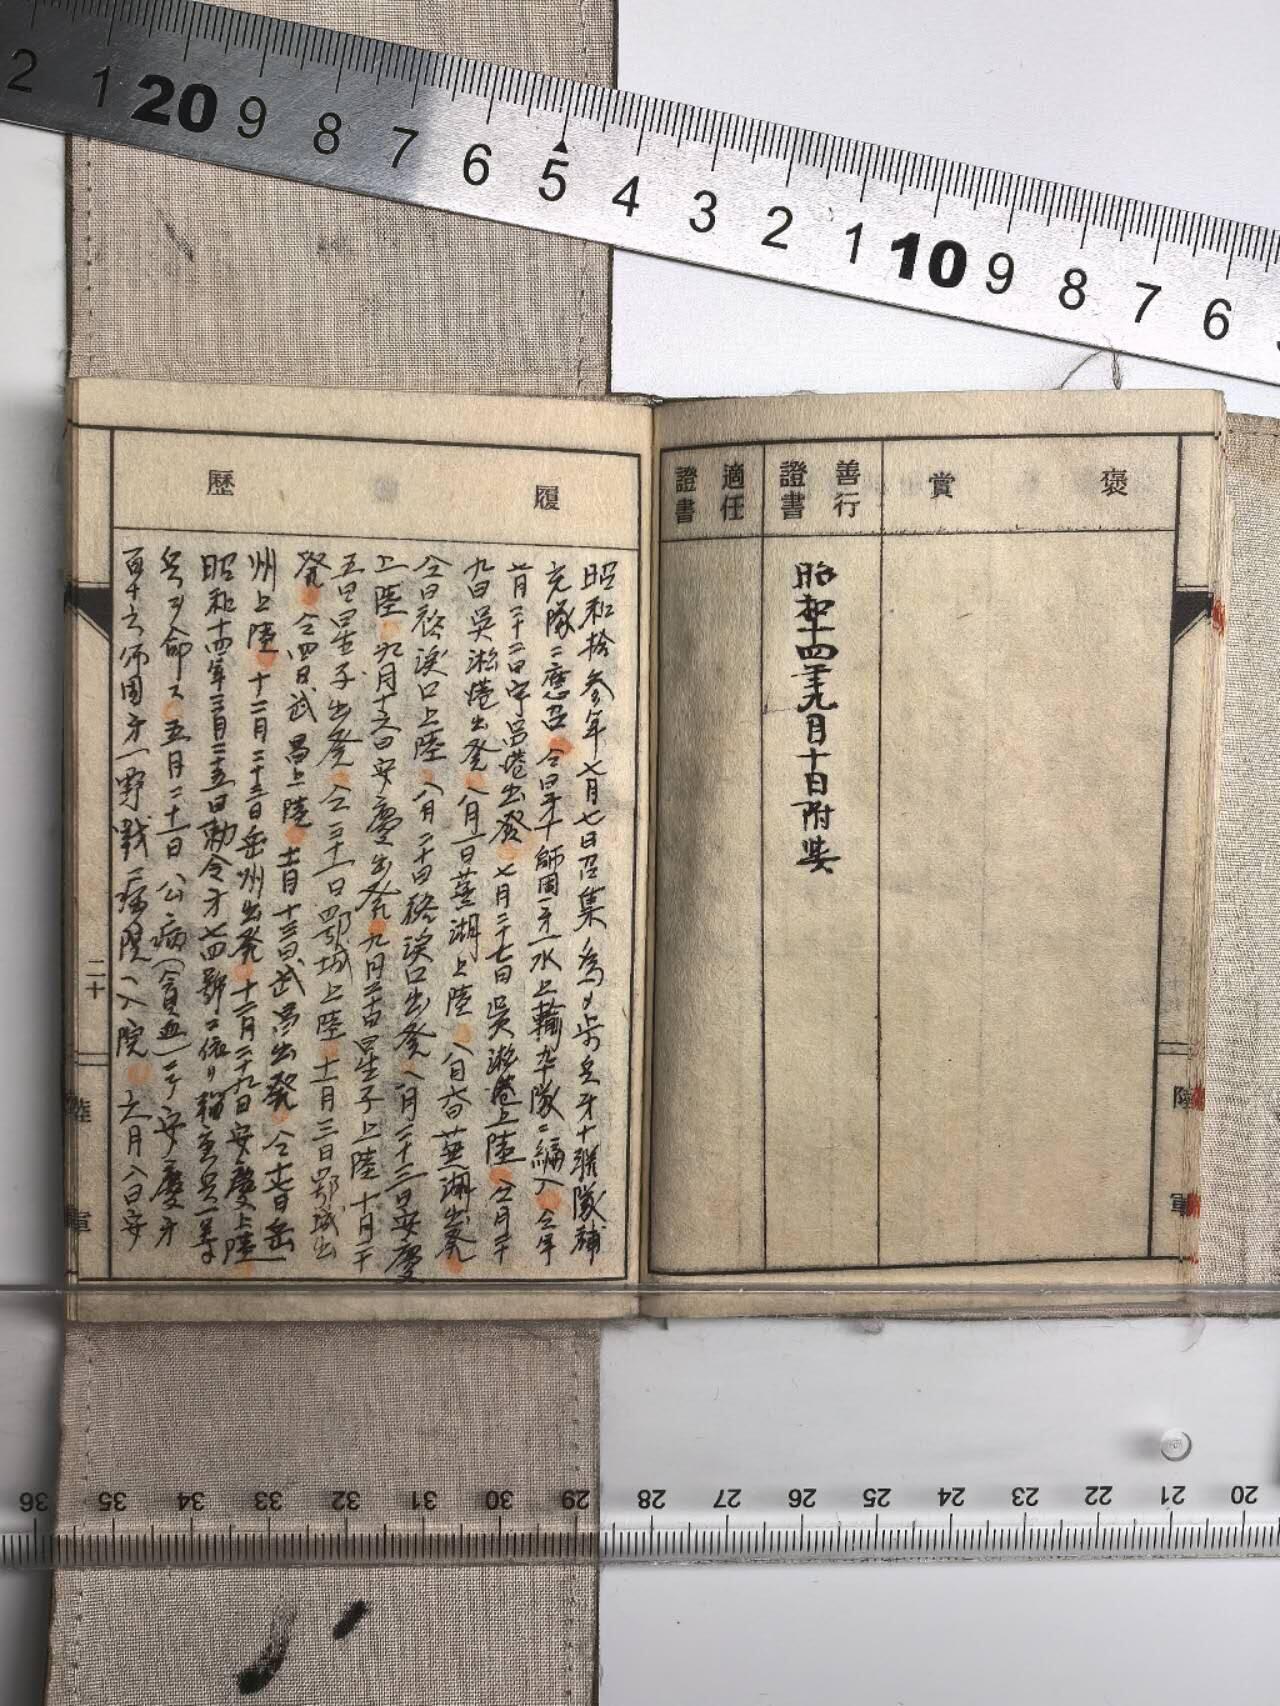 2 1 20 9 8 7 6 5 4 3 2 1 10 9 8 7 6
褒賞
善行證書
昭和十四年九月十日附與
適任證書
履歷
昭和拾参年七月七日召集ノ為メ歩兵才十聯隊補
充隊ニ應召 仝日第十師團才一水上輸卒隊ニ編入 仝年
七月二十二日宇品港出發 七月二十七日吳淞港上陸 仝月二十
九日吳淞港出発 八月一日蕪湖上陸 八月 日蕪湖出発
仝日 渓口上陸 八月二十日 渓口出発 八月二十三日安慶
上陸 九月十六日安慶出発 九月二十日星子上陸 十月二十
五日星子出発 仝三十一日鄂城上陸 十一月三日鄂城出
発 仝四日武昌上陸 十一月十三日武昌出発 仝十七日岳
州上陸 十二月二十三日岳州出発 十二月二十九日安慶上陸
昭和十四年三月二十五日勅令才七四號ニ依リ輜重兵一等
兵ヲ命ス 五月二十一日公病(貧血)ニテ安慶才
百十六師團才一野戰病院ヘ入院 六月八日安
二十
陸軍
陸軍
36 35 34 33 32 31 30 29 28 27 26 25 24 23 22 21 20